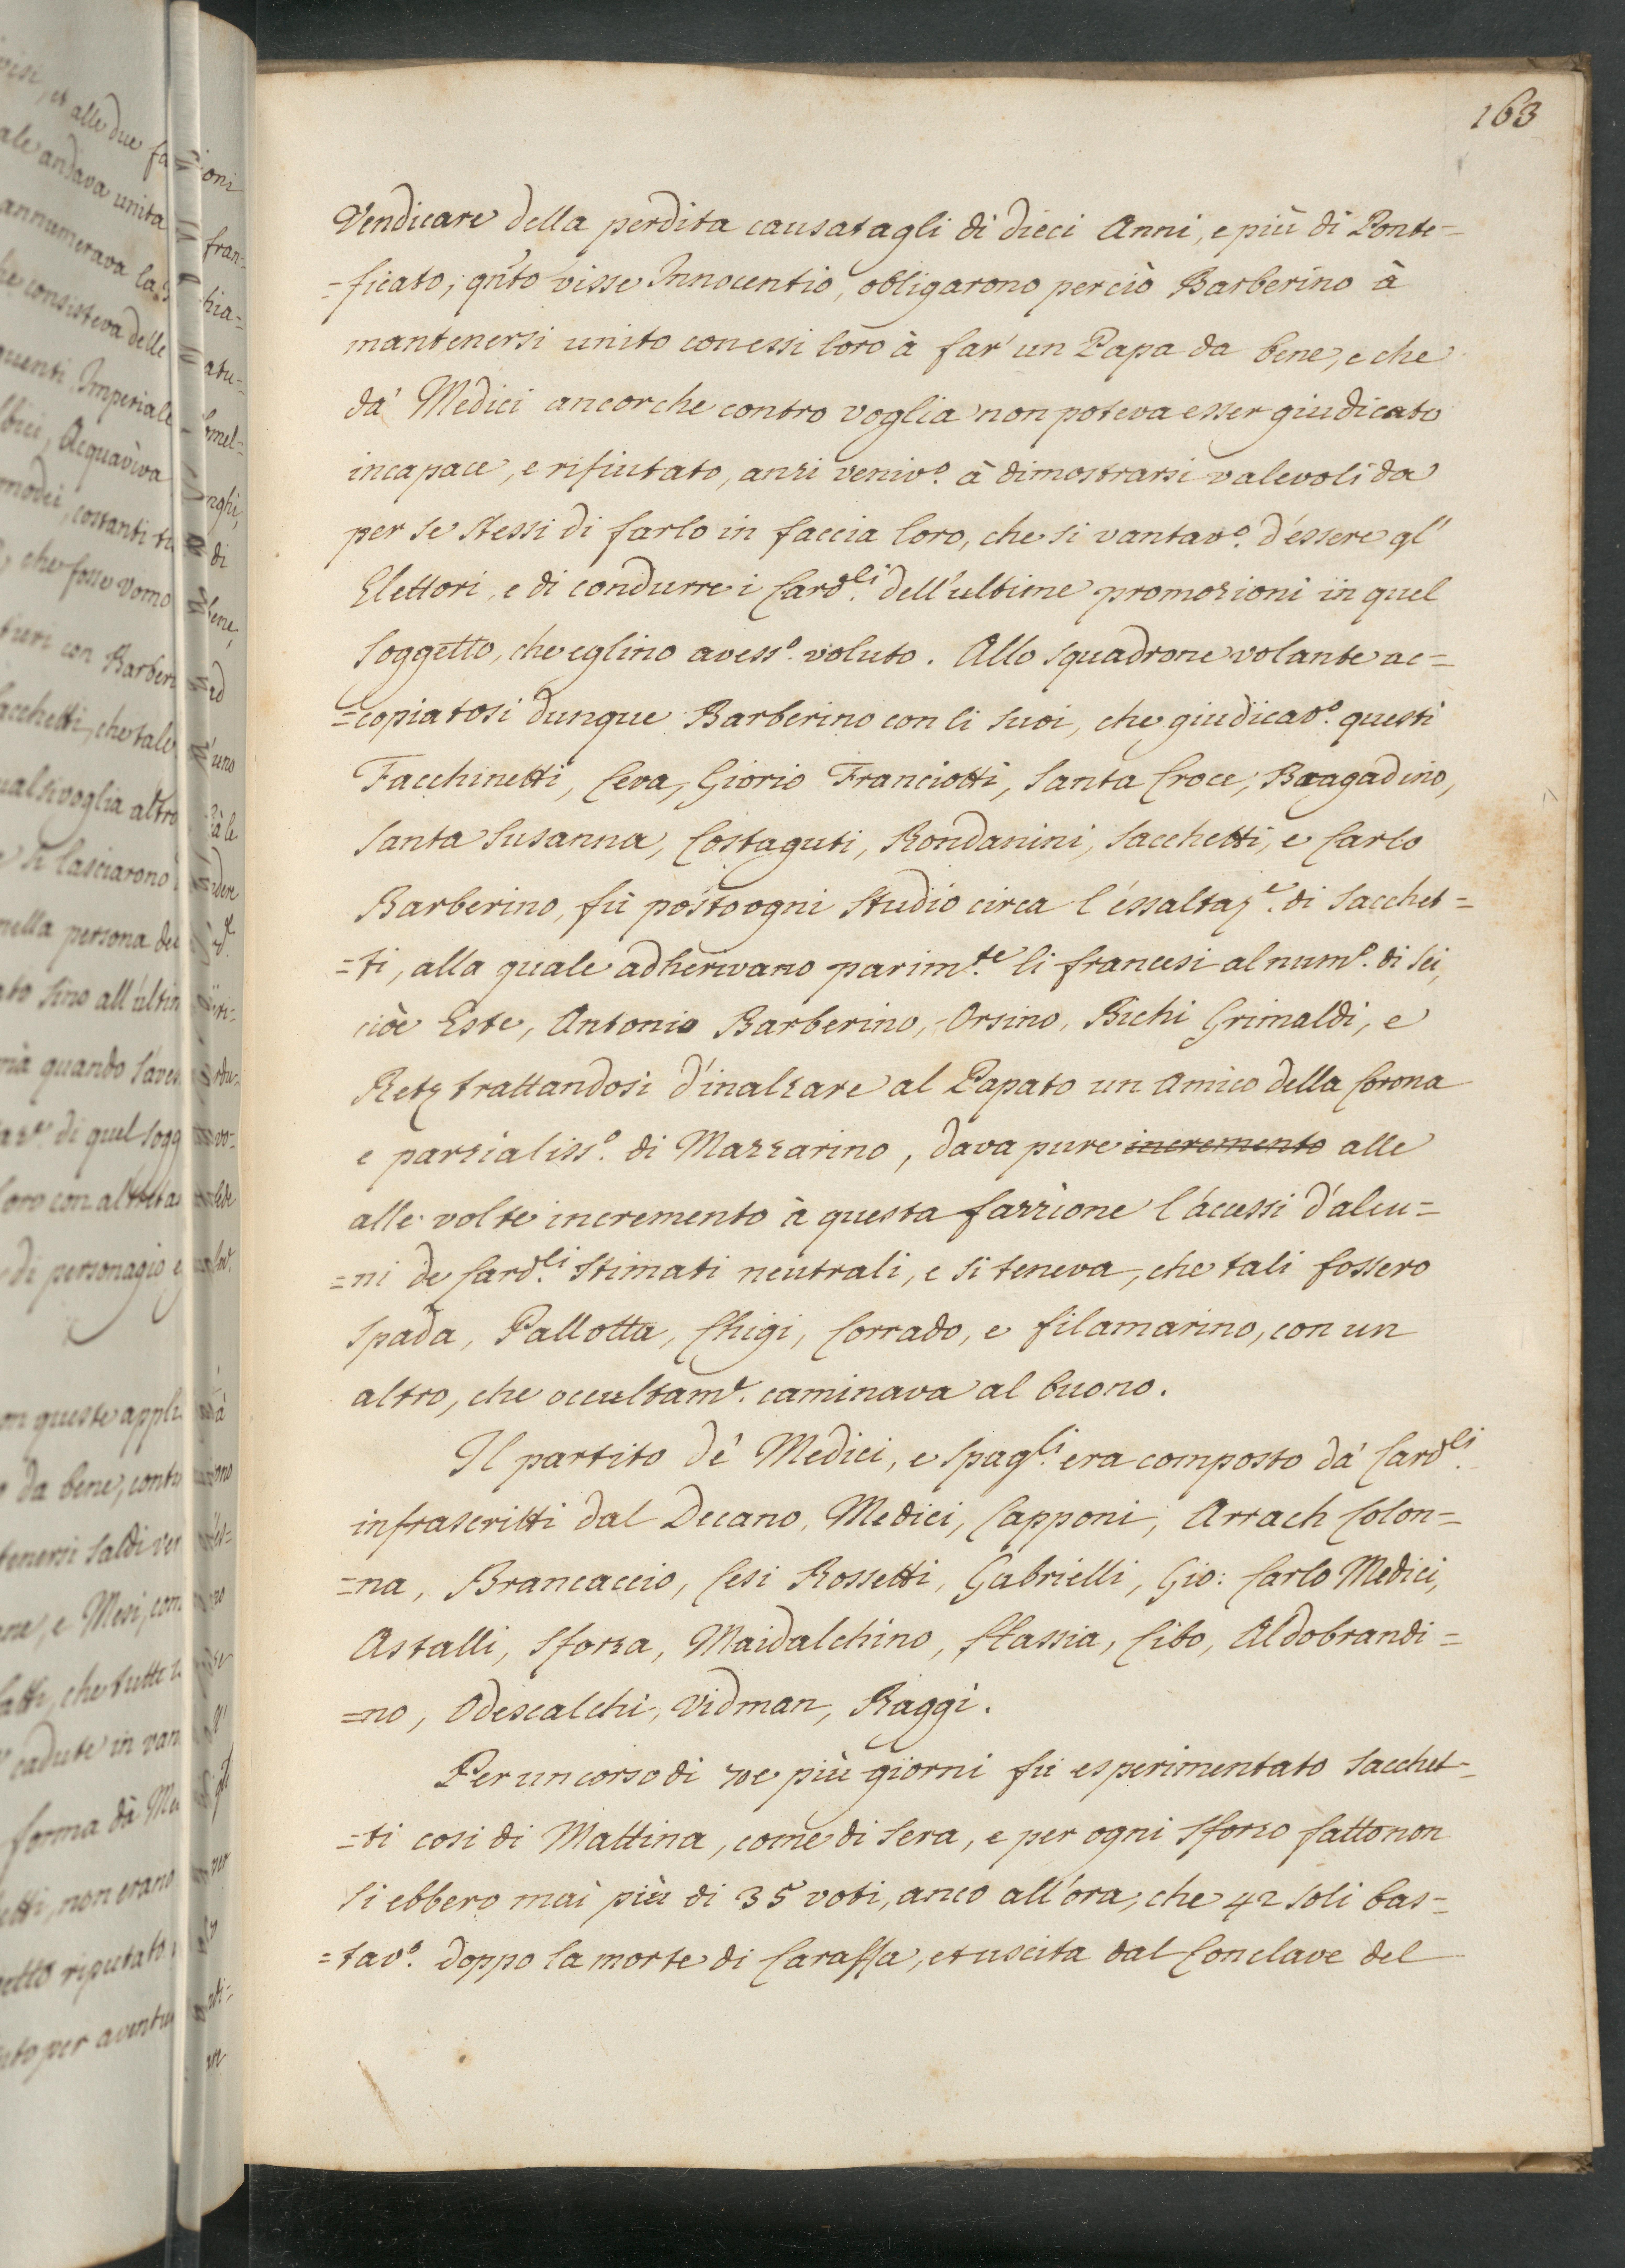 163
Vendicare della perdita causatagli di dieci Anni, e più di Ponte=
=ficato; qn'to visse Innocentio, obligarono perciò Barberino à
mantenersi unito con essi loro à far' un Papa da bene, e che
dà Medici ancorche contro voglia non poteva esser giudicato
incapace, e rifiutato, anzi veniv.º à dimostrarsi valevoli da
per se stessi di farlo in faccia loro, che si vantav.º d'essere gl'
Elettori, e di condurre i Card.li dell'ultime promozioni in quel
soggetto, che eglino avess.º voluto. Allo squadrone volante ac=
=copiatosi dunque Barberino con li suoi, che giudicav.º questi
Facchinetti, Ceva, Giorio Franciotti, Santa Croce, Bragadino,
Santa Susanna, Costaguti, Rondanini, Sacchetti, e Carlo
Barberino, fù posto ogni studio circa l'essaltaz.e di Sacchet=
=ti, alla quale adherivano parim.te li francesi al num.º di sei,
cioè Este, Antonio Barberino, Orsino, Bichi Grimaldi, e
Retz trattandosi d'inalzare al Papato un Amico della Corona
e parzialiss.º di Mazzarino, dava pure incremento alle
alle volte incremento à questa fazzione l'acessi d'alcu=
=ni de Card.li stimati neutrali, e si teneva, che tali fossero
Spada, Pallotta, Chigi, Corrado, e Filamarino, con un
altro, che occultam.e caminava al buono.
Il partito dè Medici, e Spag.li era composto dà Card.li
infrascritti dal Decano, Medici, Capponi, Arrach Colon=
=na, Brancaccio, Cesi Rossetti, Gabrielli, Gio: Carlo Medici,
Astalli, Sforza, Maidalchino, Hassia, Cibo, Aldobrandi=
=no, Odescalchi, Vidman, Raggi.
Per un corso di 70 e più giorni fù esperimentato Sacchet=
=ti cosi di Mattina, come di sera, e per ogni sforzo fatto non
si ebbero mai più di 35 voti, anco all'ora, che 42 soli bas=
=tav.º doppo la morte di Caraffa, et uscita dal Conclave del